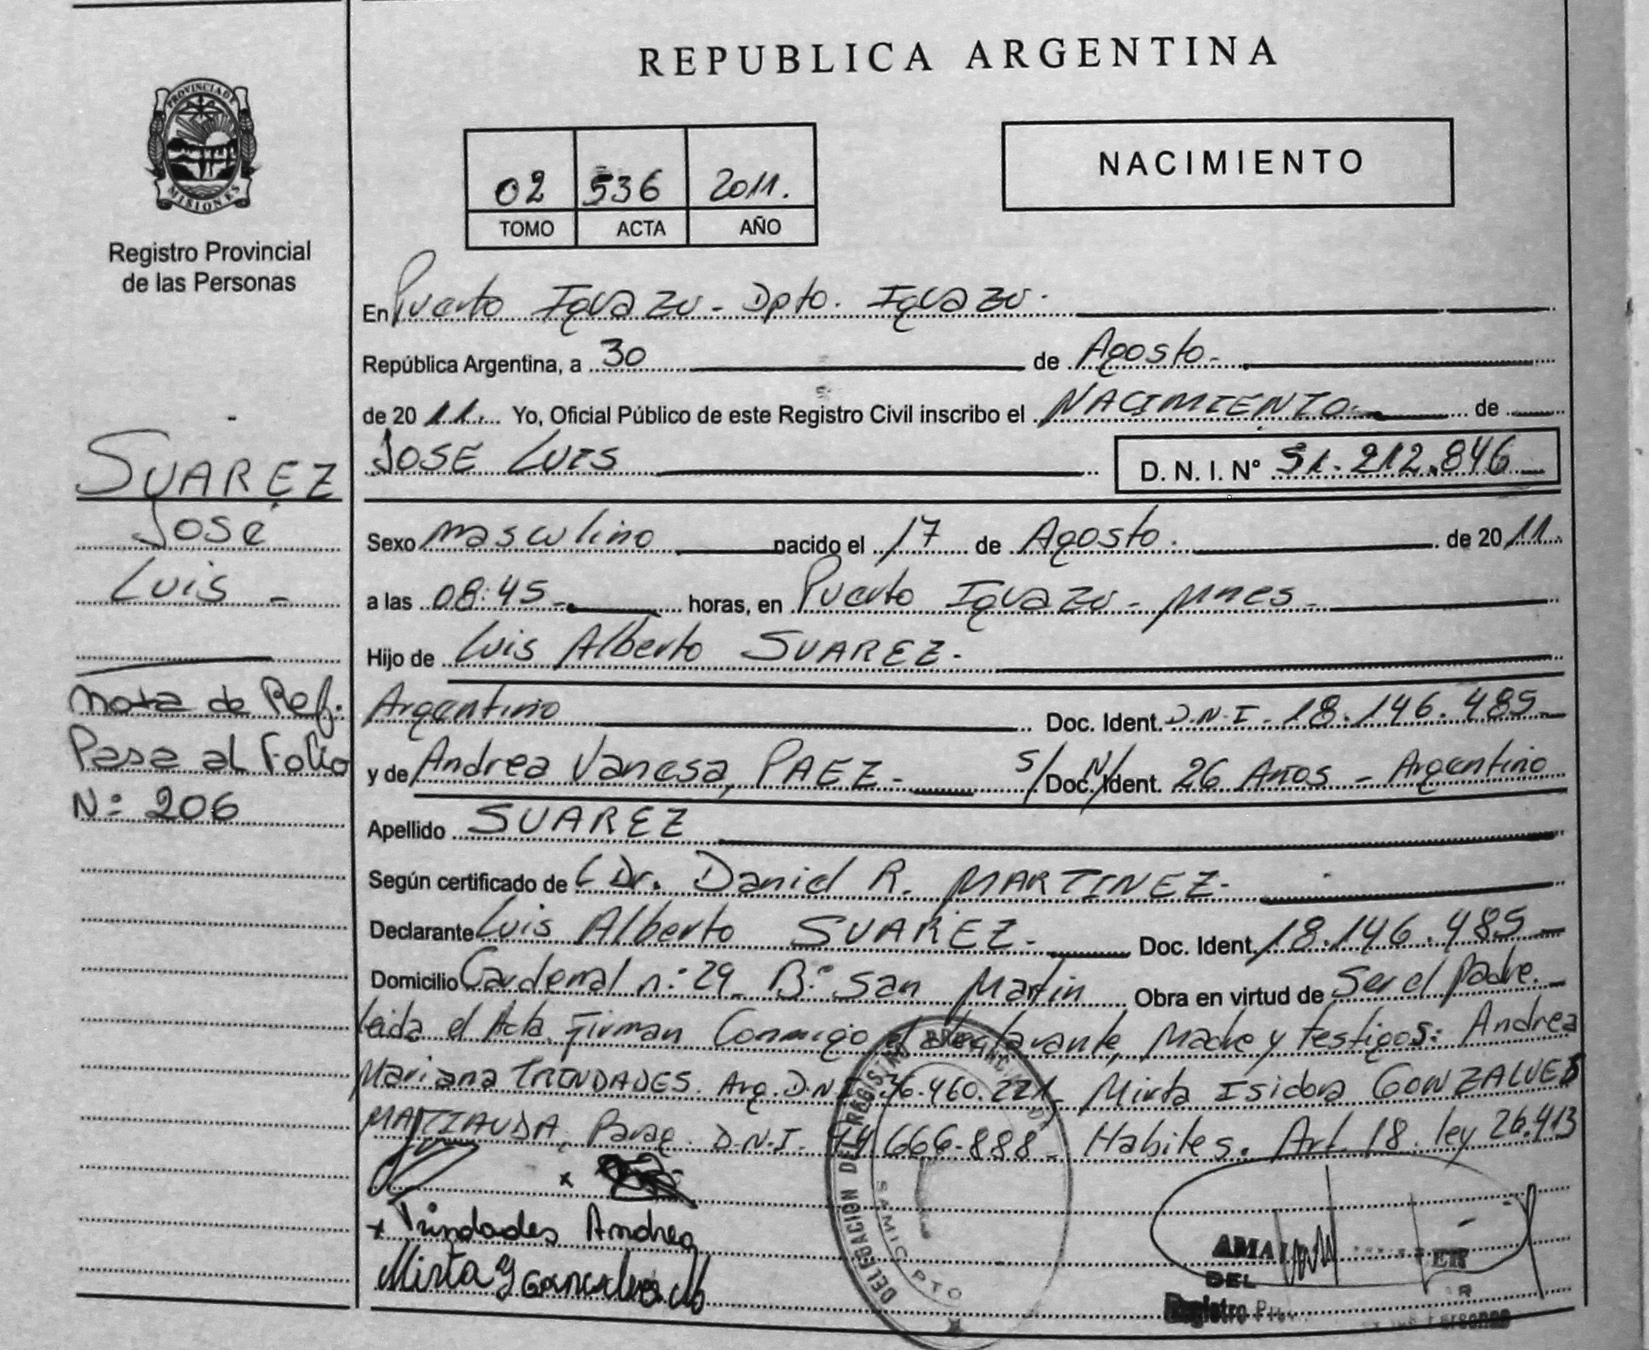 REPUBLICA ARGENTINA
PROVINCIA DE
MISIONES
Registro Provincial
de las Personas
02 536 2011.
TOMO ACTA AÑO
NACIMIENTO
En Puerto Iguazu - Dpto. Iguazu.
República Argentina, a 30 de Agosto-
de 20 11. Yo, Oficial Público de este Registro Civil inscribo el NACIMIENTO- de
JOSE LUIS D. N. I. Nº 51.212.846
SUAREZ
José
Luis -
Sexo masculino nacido el 17 de Agosto. de 20 11.
a las 08:45- horas, en Puerto Iguazu - Mnes-
Hijo de Luis Alberto SUAREZ-
Argentino Doc. Ident. D.N.I- 18.146.485-
y de Andrea Vanesa, PAEZ- S/ Doc. N/ Ident. 26 Años - Argentino
Apellido SUAREZ
Según certificado de Dr. Daniel R. MARTINEZ-
Declarante Luis Alberto SUAREZ- Doc. Ident. 18.146.485-
Domicilio Cardenal n: 29- Bº San Martin Obra en virtud de Ser el padre.-
leida el Acta, Firman Conmigo el declarante, Madre y testigos: Andrea
Mariana TRINDADES. Arg. D.N.I 36.460.221- Mirta Isidora GONZALVES
MARTIAUDA, Parag. D.N.I. 94 666.888- Habiles. Art. 18. ley 26.413
nota de Ref.
Pasa al Folio
N: 206
x
x Trindades Andrea
Mirta G
DELEGACION DEL REGISTRO
PTO
DEL
Registro